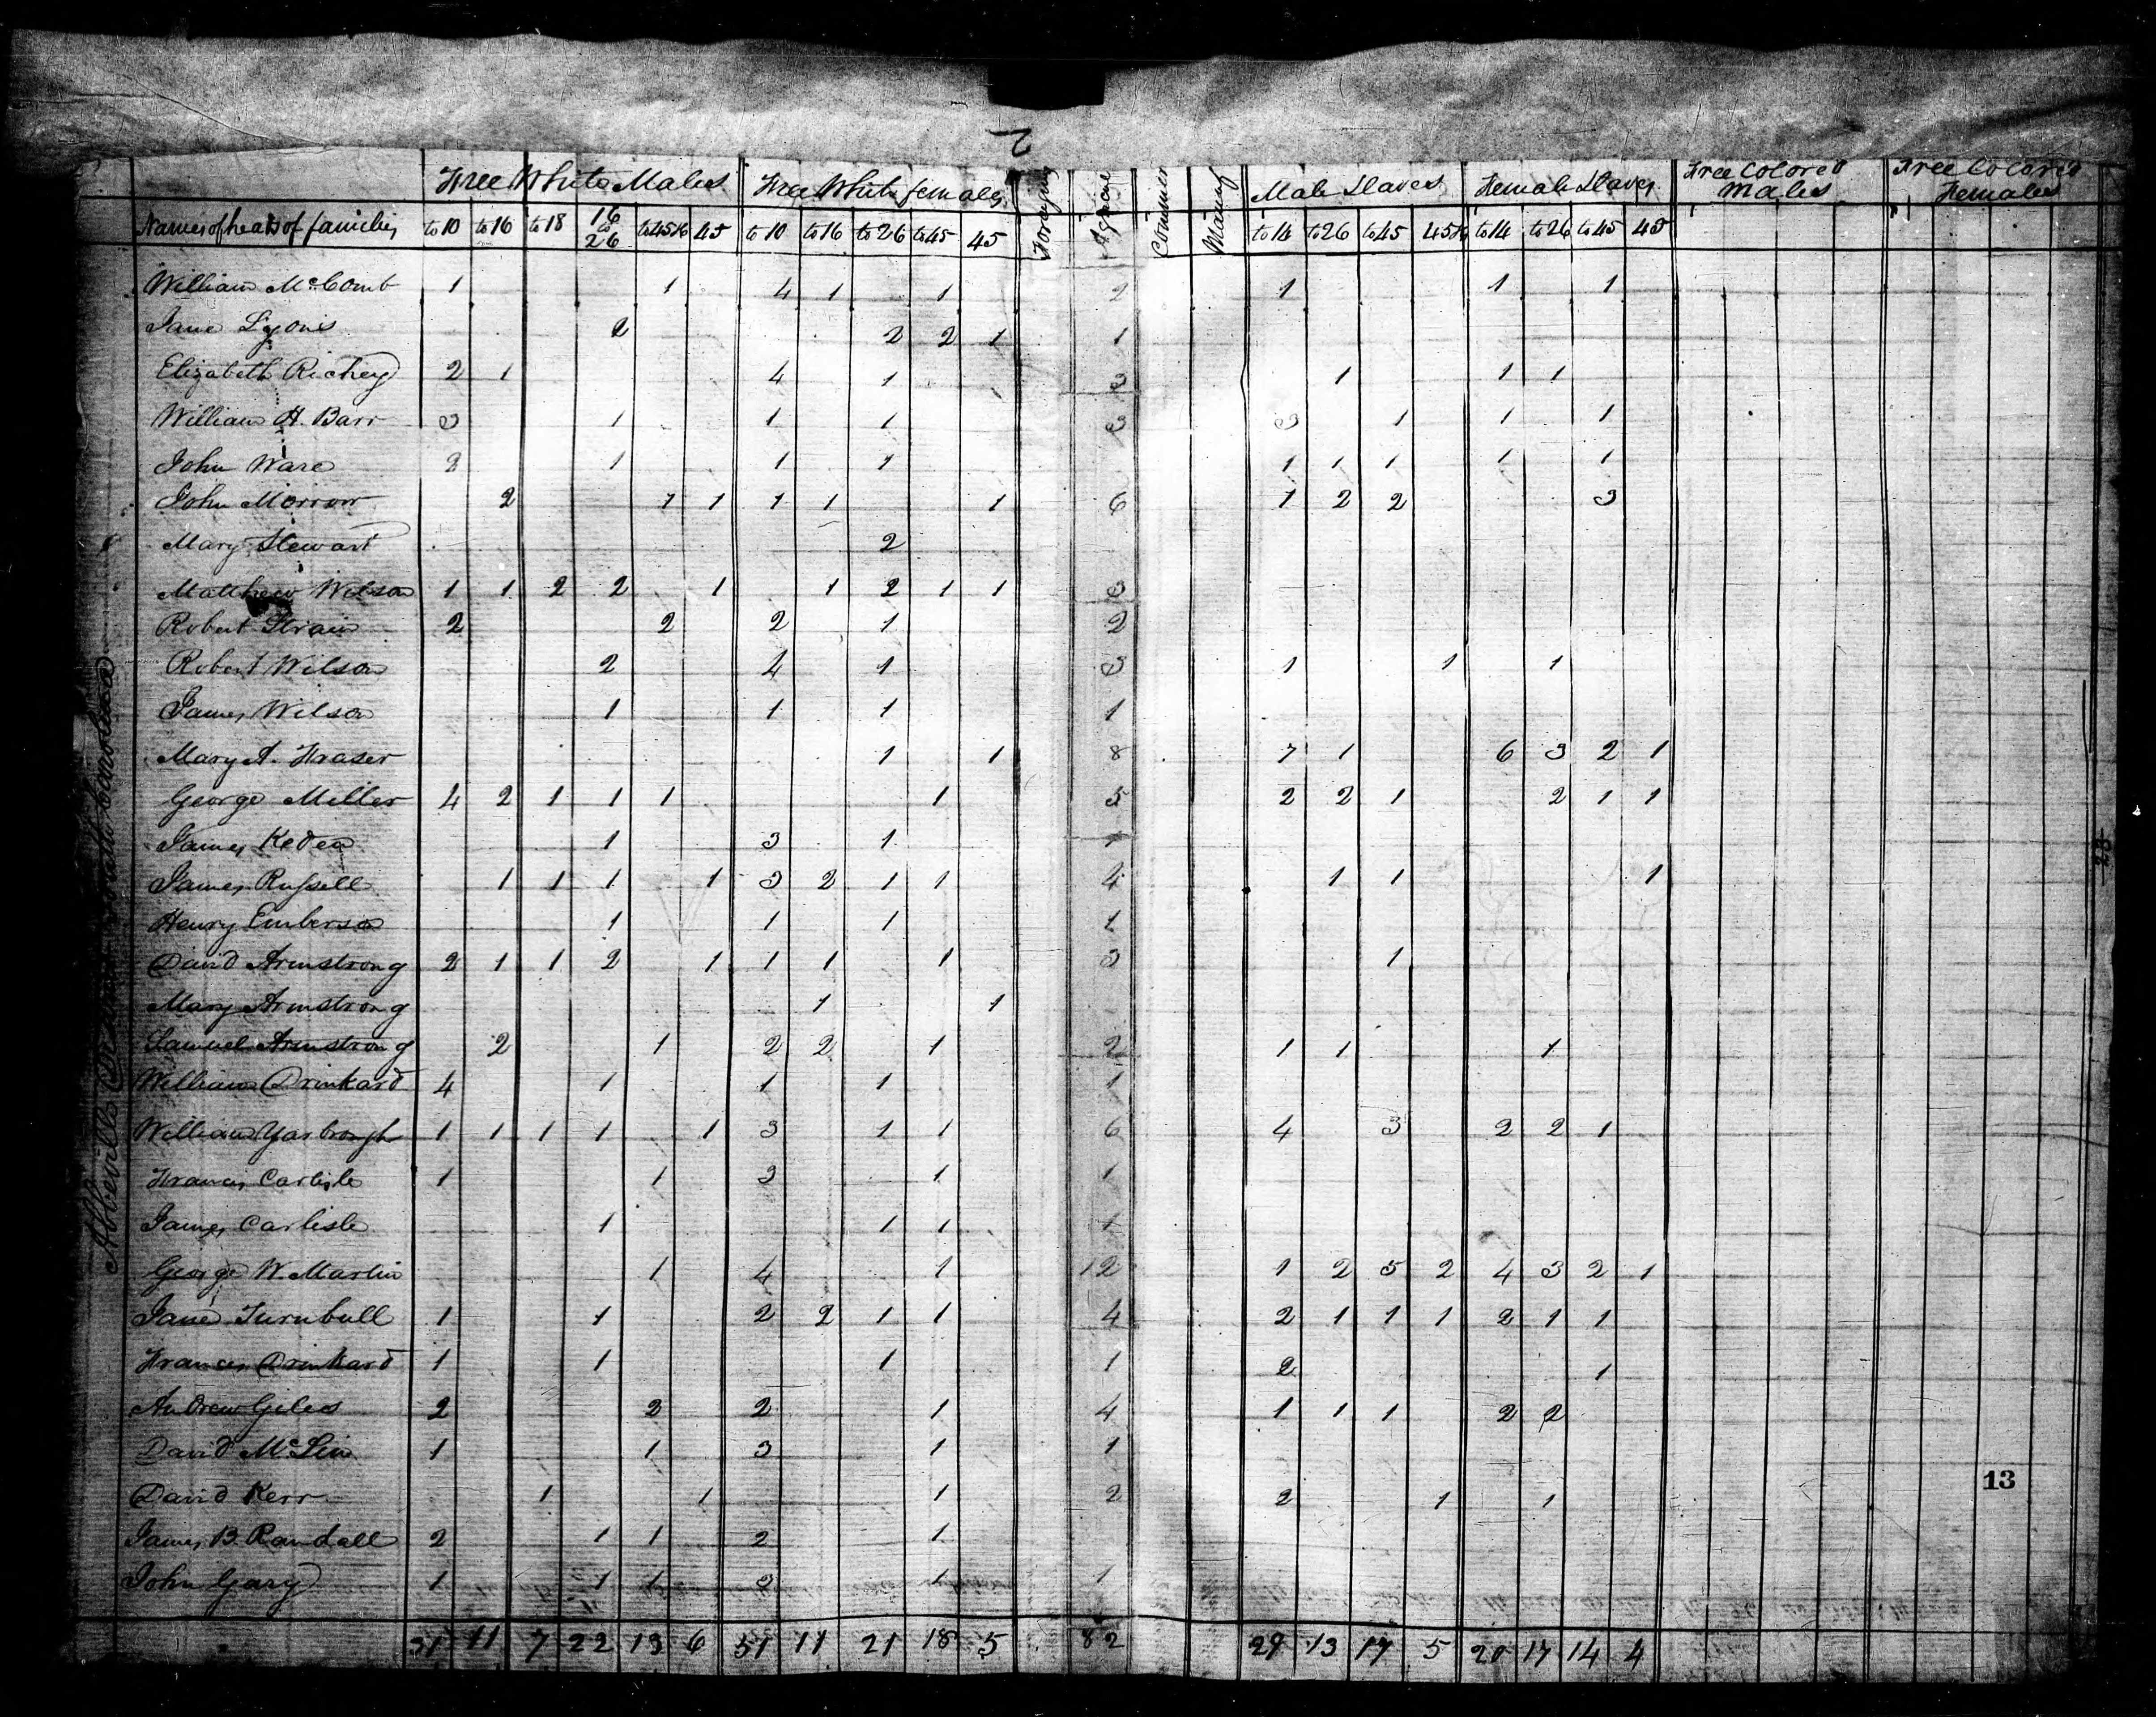 2
Free White Males Free White females Foreigners Agricul Commer Manuf Male Slaves Female Slaves Free Colored Males Free Colored Females
Names of heads of families to 10 to 16 to 18 16 to 26 to 45 45 to 10 to 16 to 26 to 45 45 to 14 to 26 to 45 45 to 14 to 26 to 45 45
William McComb 1 1 4 1 1 2 1 1 1
Jane Lyons 2 2 2 1 1
Elizabeth Richey 2 1 4 1 3 1 1 1
William H. Barr 3 1 1 1 3 3 1 1 1
John Ware 2 1 1 1 1 1 1 1 1
John Morrow 2 1 1 1 1 1 6 1 2 2 3
Mary Stewart 2
Matthew Wilson 1 1 2 2 1 1 2 1 1 3
Robert Strain 2 2 2 1 2
Robert Wilson 2 4 1 3 1 1 1
James Wilson 1 1 1 1
Mary A. Fraser 1 1 8 7 1 6 3 2 1
George Miller 4 2 1 1 1 1 5 2 2 1 2 1 1
James Kedea 1 3 1 1
James Russell 1 1 1 1 3 2 1 1 4 1 1 1
Henry Emberson 1 1 1 1
David Armstrong 2 1 1 2 1 1 1 1 3 1
Mary Armstrong 1 1
Samuel Armstrong 2 1 2 2 1 2 1 1 1
William Drinkard 4 1 1 1 1
William Yarbrough 1 1 1 1 1 3 1 1 6 4 3 2 2 1
Francis Carlisle 1 1 3 1 1
James Carlisle 1 1 1 1
George W. Martin 1 4 1 12 1 2 5 2 4 3 2 1
Jane Turnbull 1 1 2 2 1 1 4 2 1 1 1 2 1 1
Francis Drinkard 1 1 1 1 2 1
Andrew Giles 2 2 2 1 4 1 1 1 2 2
David McLin 1 1 3 1 1
David Kerr 1 1 1 2 2 1 1
James B. Randall 2 1 1 2 1
John Gary 1 1 1 3 1 1
31 11 7 22 13 6 51 11 21 18 5 82 29 13 17 5 20 17 14 4
Abbeville District South Carolina
23
13